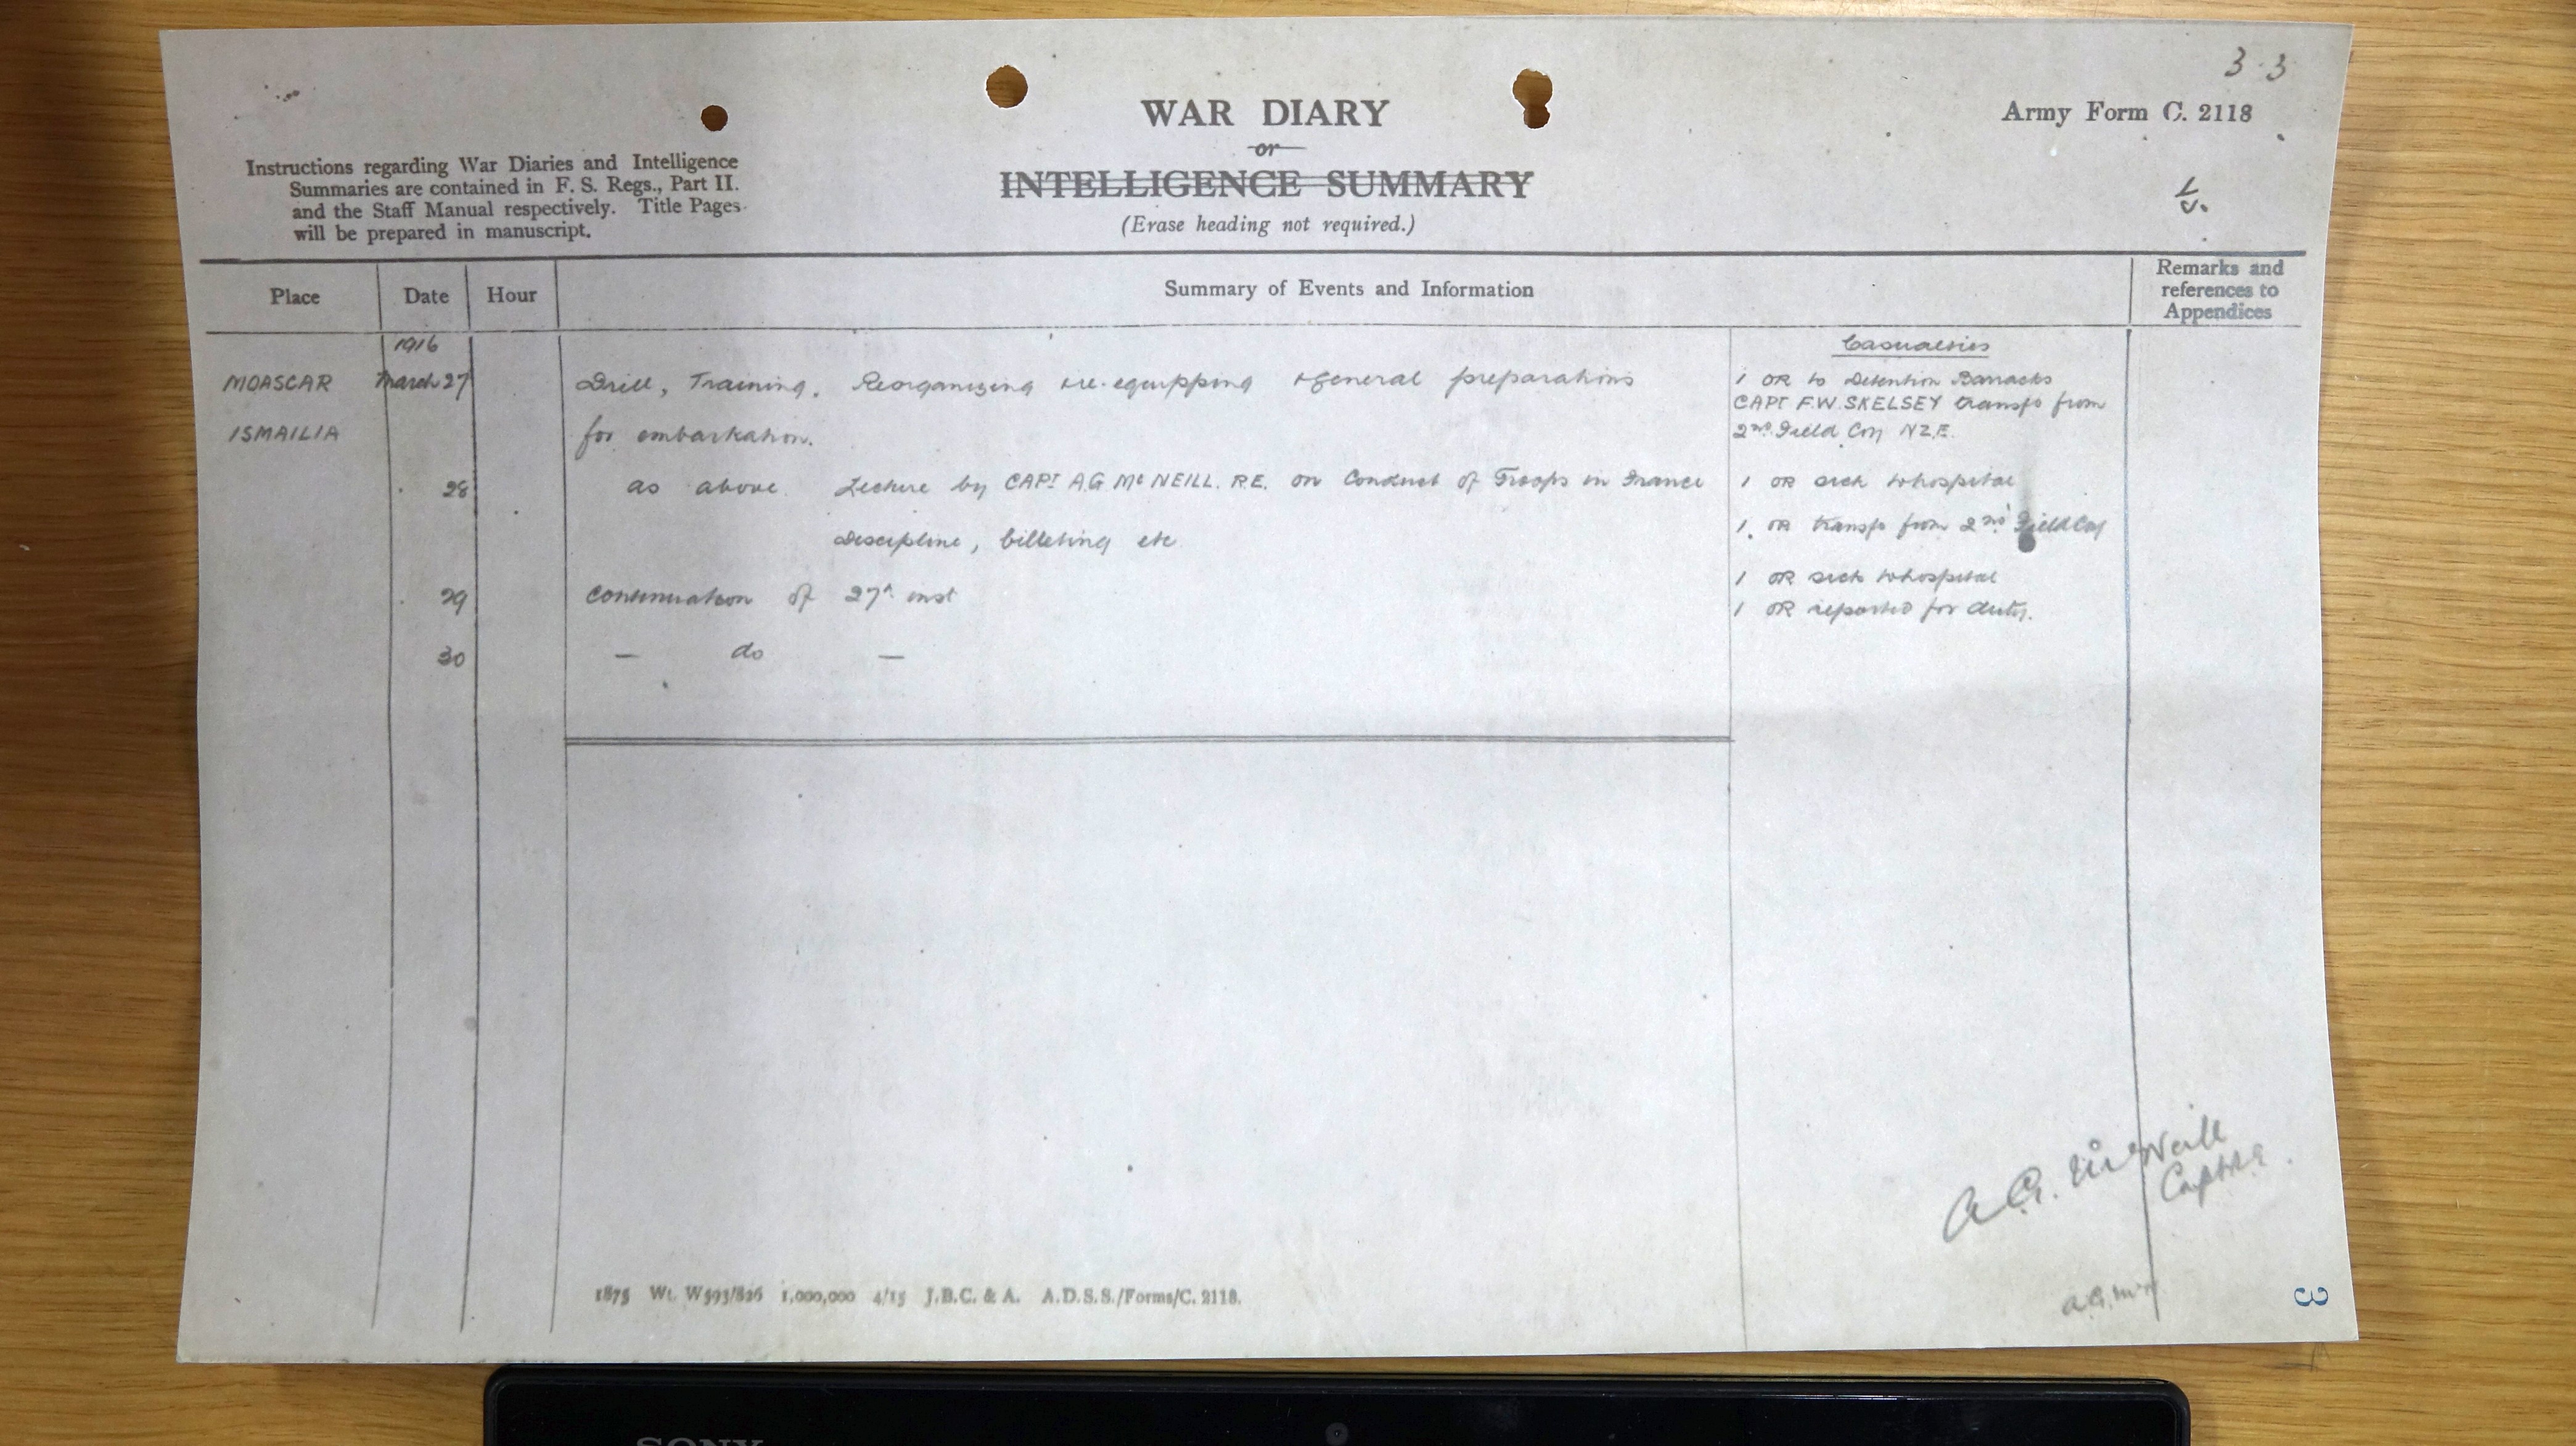 3 3
WAR DIARY
or
INTELLIGENCE SUMMARY
(Erase heading not required.)
Army Form C. 2118
Instructions regarding War Diaries and Intelligence
Summaries are contained in F. S. Regs., Part II.
and the Staff Manual respectively. Title Pages
will be prepared in manuscript.
Place Date Hour Summary of Events and Information Remarks and
references to
Appendices
1916 Casualties
MOASCAR March 27 Drill, Training, Reorganizing + re-equipping + general preparations 1 OR to Detention Barracks
CAPT F.W. SKELSEY transfd from
ISMAILIA for embarkation. 2nd Field Coy NZE.
28 as above. Lecture by CAPT A.G. McNEILL. R.E. on Conduct of Troops in France 1 OR sick to hospital
Discipline, billeting etc 1. OR transfd from 2nd Field Coy
1 OR sick to hospital
29 Continuation of 27th inst 1 OR reported for duty.
30 — do —
A.G. McNeill
Capt R.E.
1875 Wt. W593/826 1,000,000 4/15 J.B.C. & A. A.D.S.S./Forms/C. 2118.
3
SONY